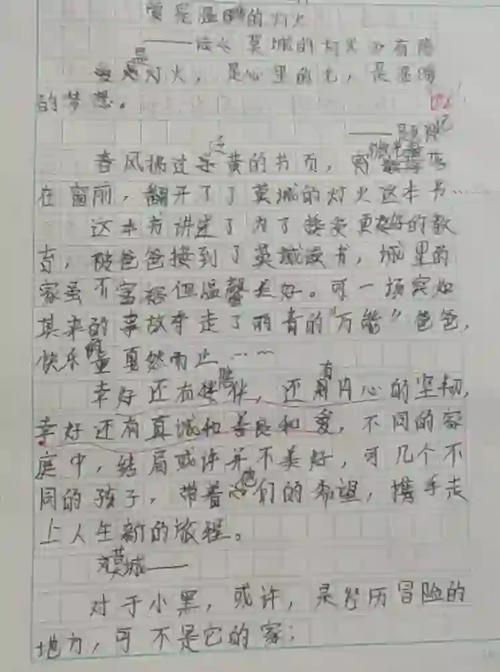 爱是温暖的灯火
——读《莫城的灯火》有感
是灯火，是心里的光，是温暖
的梦想。
——题记
春风拂过泛黄的书页，
在窗前，翻开了了莫城的灯火这本书……
这本书讲述了为了接受更好的教
育，被爸爸接到了莫城读书，城里的
家虽不富裕但温馨美好。可一场突如
其来的事故夺走了丽青的“万能”爸爸，
快乐的童真戛然而止……
幸好还有陪伴，还有内心的坚韧，
幸好还有真诚和善良和爱，不同的家
庭中，结局或许并不美好，可几个不
同的孩子，带着他们的希望，携手走
上人生新的旅程。
莫城——
对于小黑，或许，是经历冒险的
地方，可不是它的家；